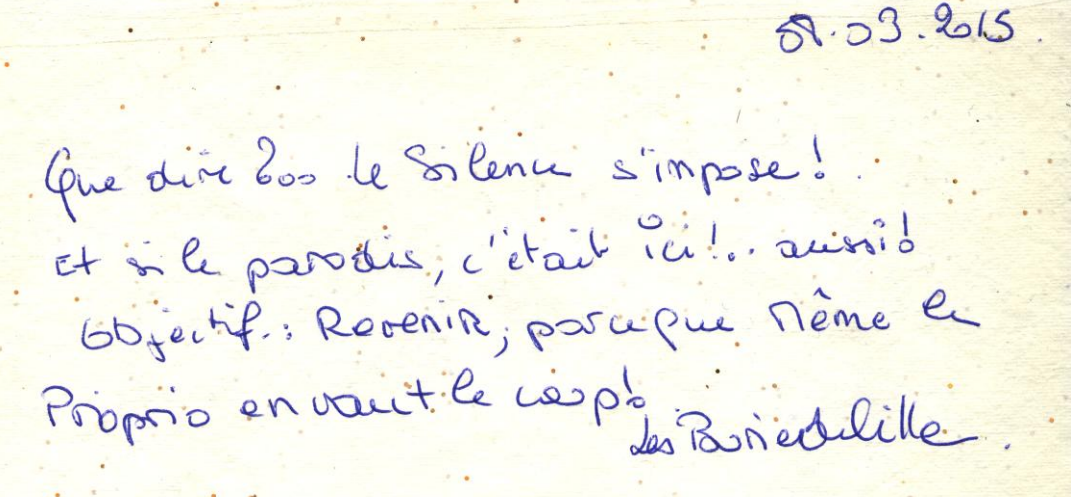 08.03.2015.
Que dire ?... le Silence s'impose !.
Et si le paradis, c'était ici !.. aussi !
Objectif : Revenir, parce que Même le
Proprio en vaut le coup !
Les